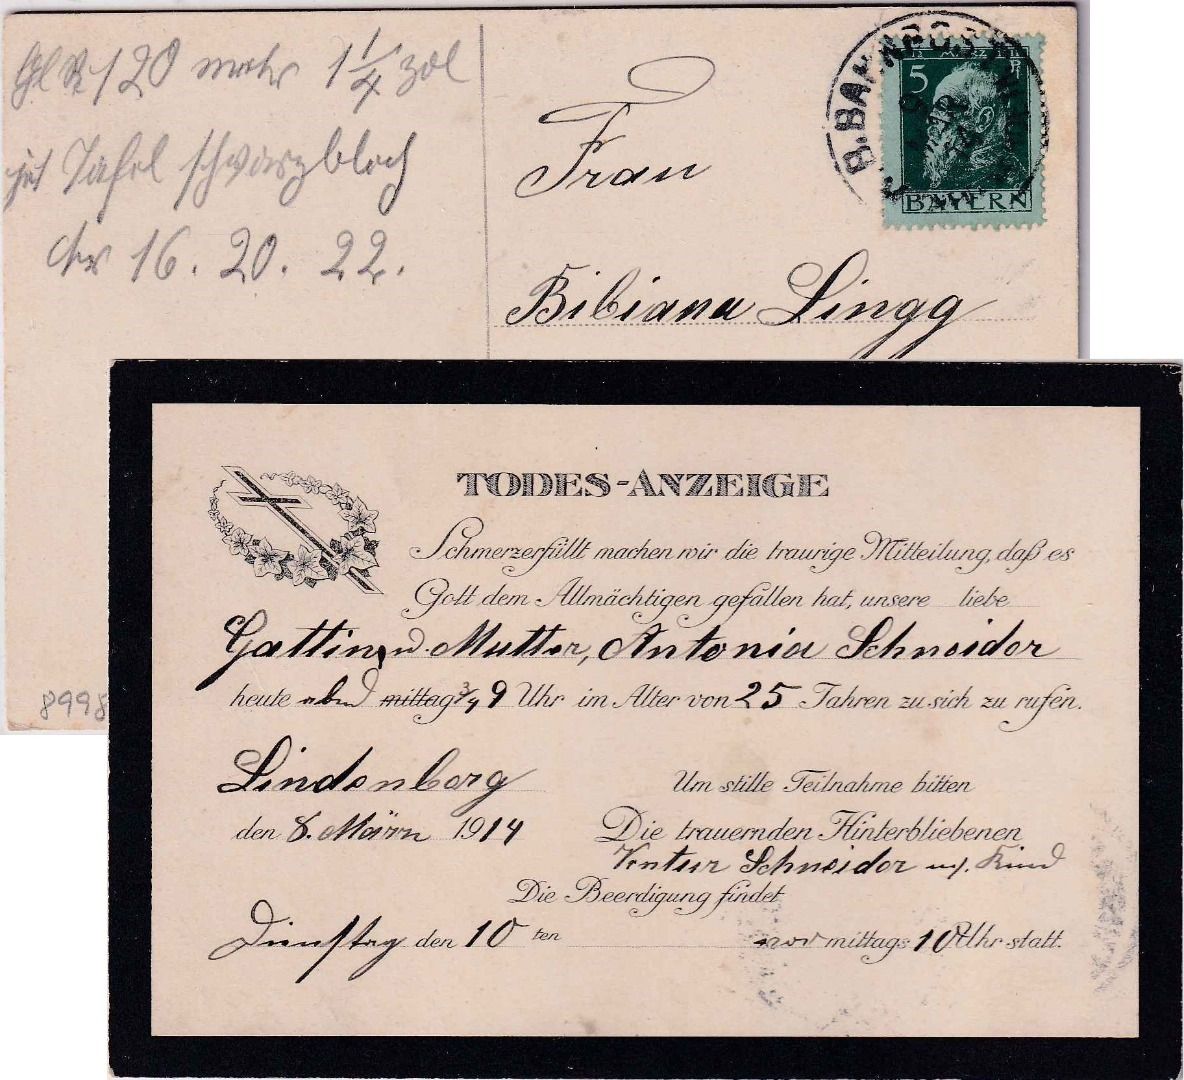 120 mehr 1 1/4 zol
Tafel schwarzblech
16. 20. 22.
Frau
Bibiana Lingg
B. BAHNPOST
5
BAYERN
8998
TODES-ANZEIGE
Schmerzerfüllt machen wir die traurige Mitteilung, daß es
Gott dem Allmächtigen gefallen hat, unsere liebe
Gattin u. Mutter, Antonia Schneider
heute abend mittag 3/4 9 Uhr im Alter von 25 Jahren zu sich zu rufen.
Lindenberg
den 8. März 1914
Um stille Teilnahme bitten
Die trauernden Hinterbliebenen
Ventur Schneider m. Kind
Die Beerdigung findet
Dienstag den 10 ten vor mittags 10 Uhr statt.